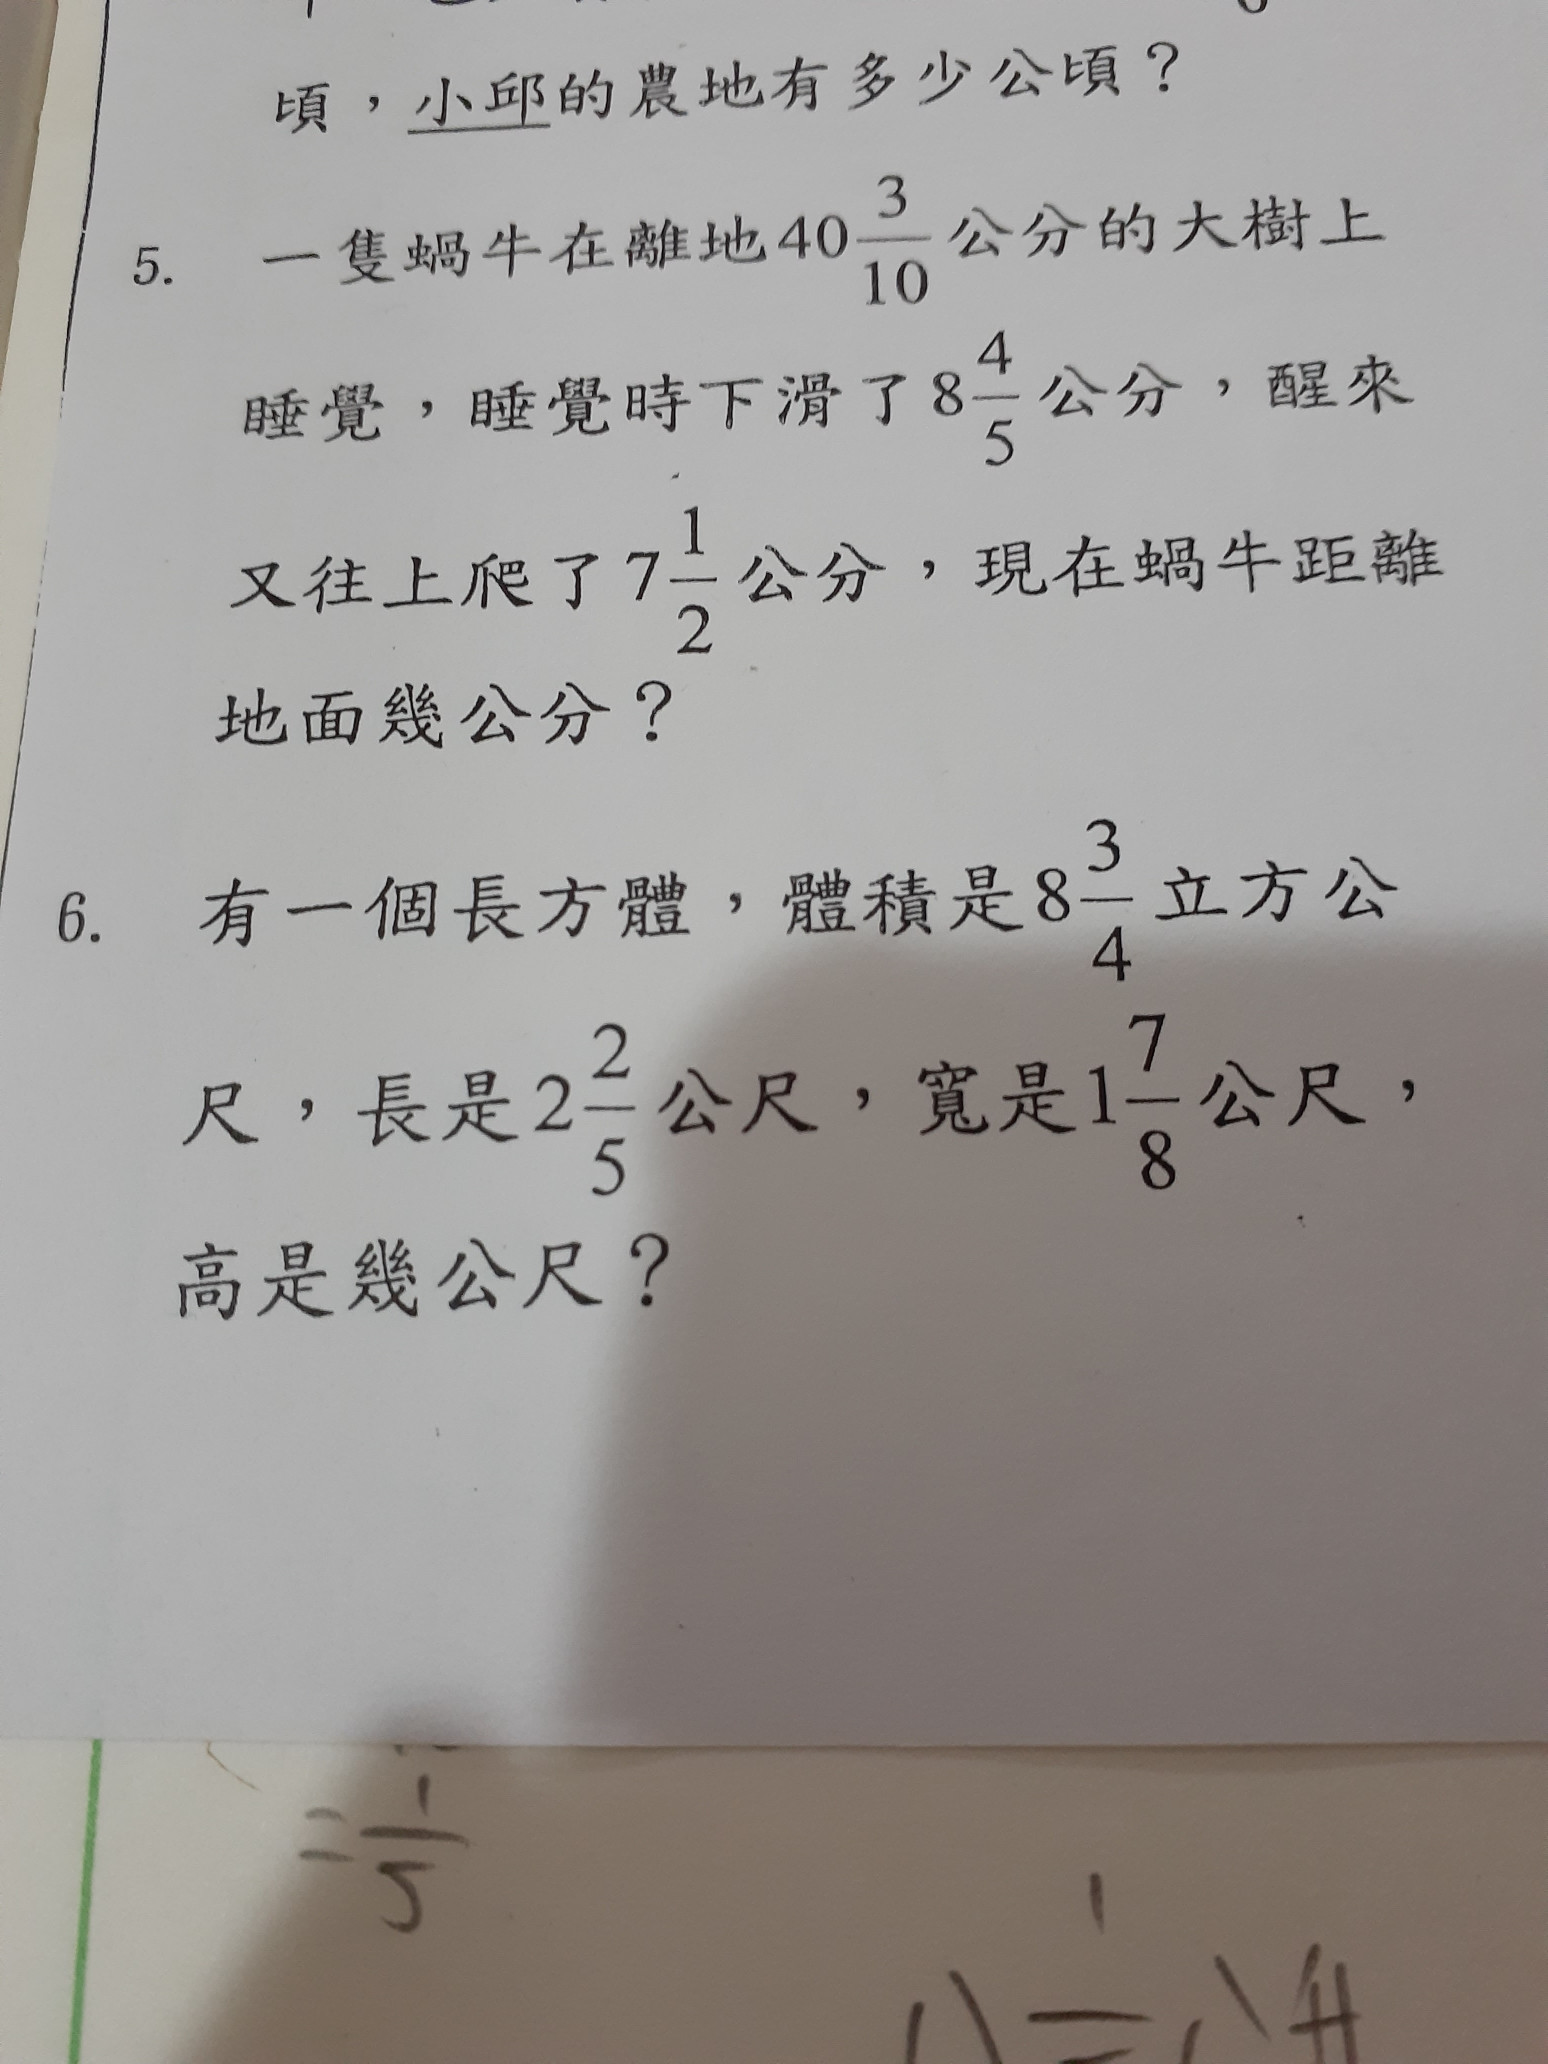 頃，小邱的農地有多少公頃？
5. 一隻蝸牛在離地40 3/10 公分的大樹上
睡覺，睡覺時下滑了8 4/5 公分，醒來
又往上爬了7 1/2 公分，現在蝸牛距離
地面幾公分？
6. 有一個長方體，體積是8 3/4 立方公
尺，長是2 2/5 公尺，寬是1 7/8 公尺，
高是幾公尺？
= 1/5